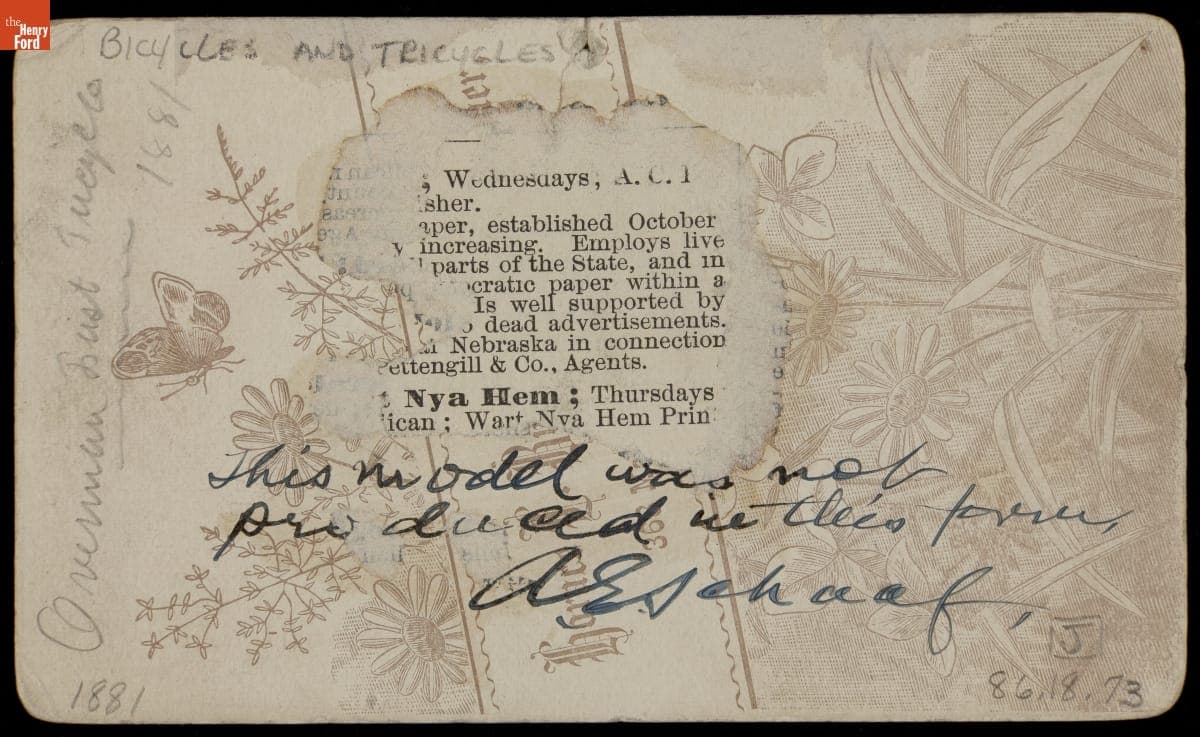 the Henry Ford
BICYCLES AND TRICYCLES
Overman First Tricycle
1881
; Wednesdays; A. C. 
isher.
aper, established October
y increasing. Employs live
parts of the State, and in
ocratic paper within a
Is well supported by
o dead advertisements.
Nebraska in connection
Pettengill & Co., Agents.
t Nya Hem; Thursdays
ican; Wart Nya Hem Prin
This model was not
produced in this form,
A E Schaaf,
J
1881
86.18.73